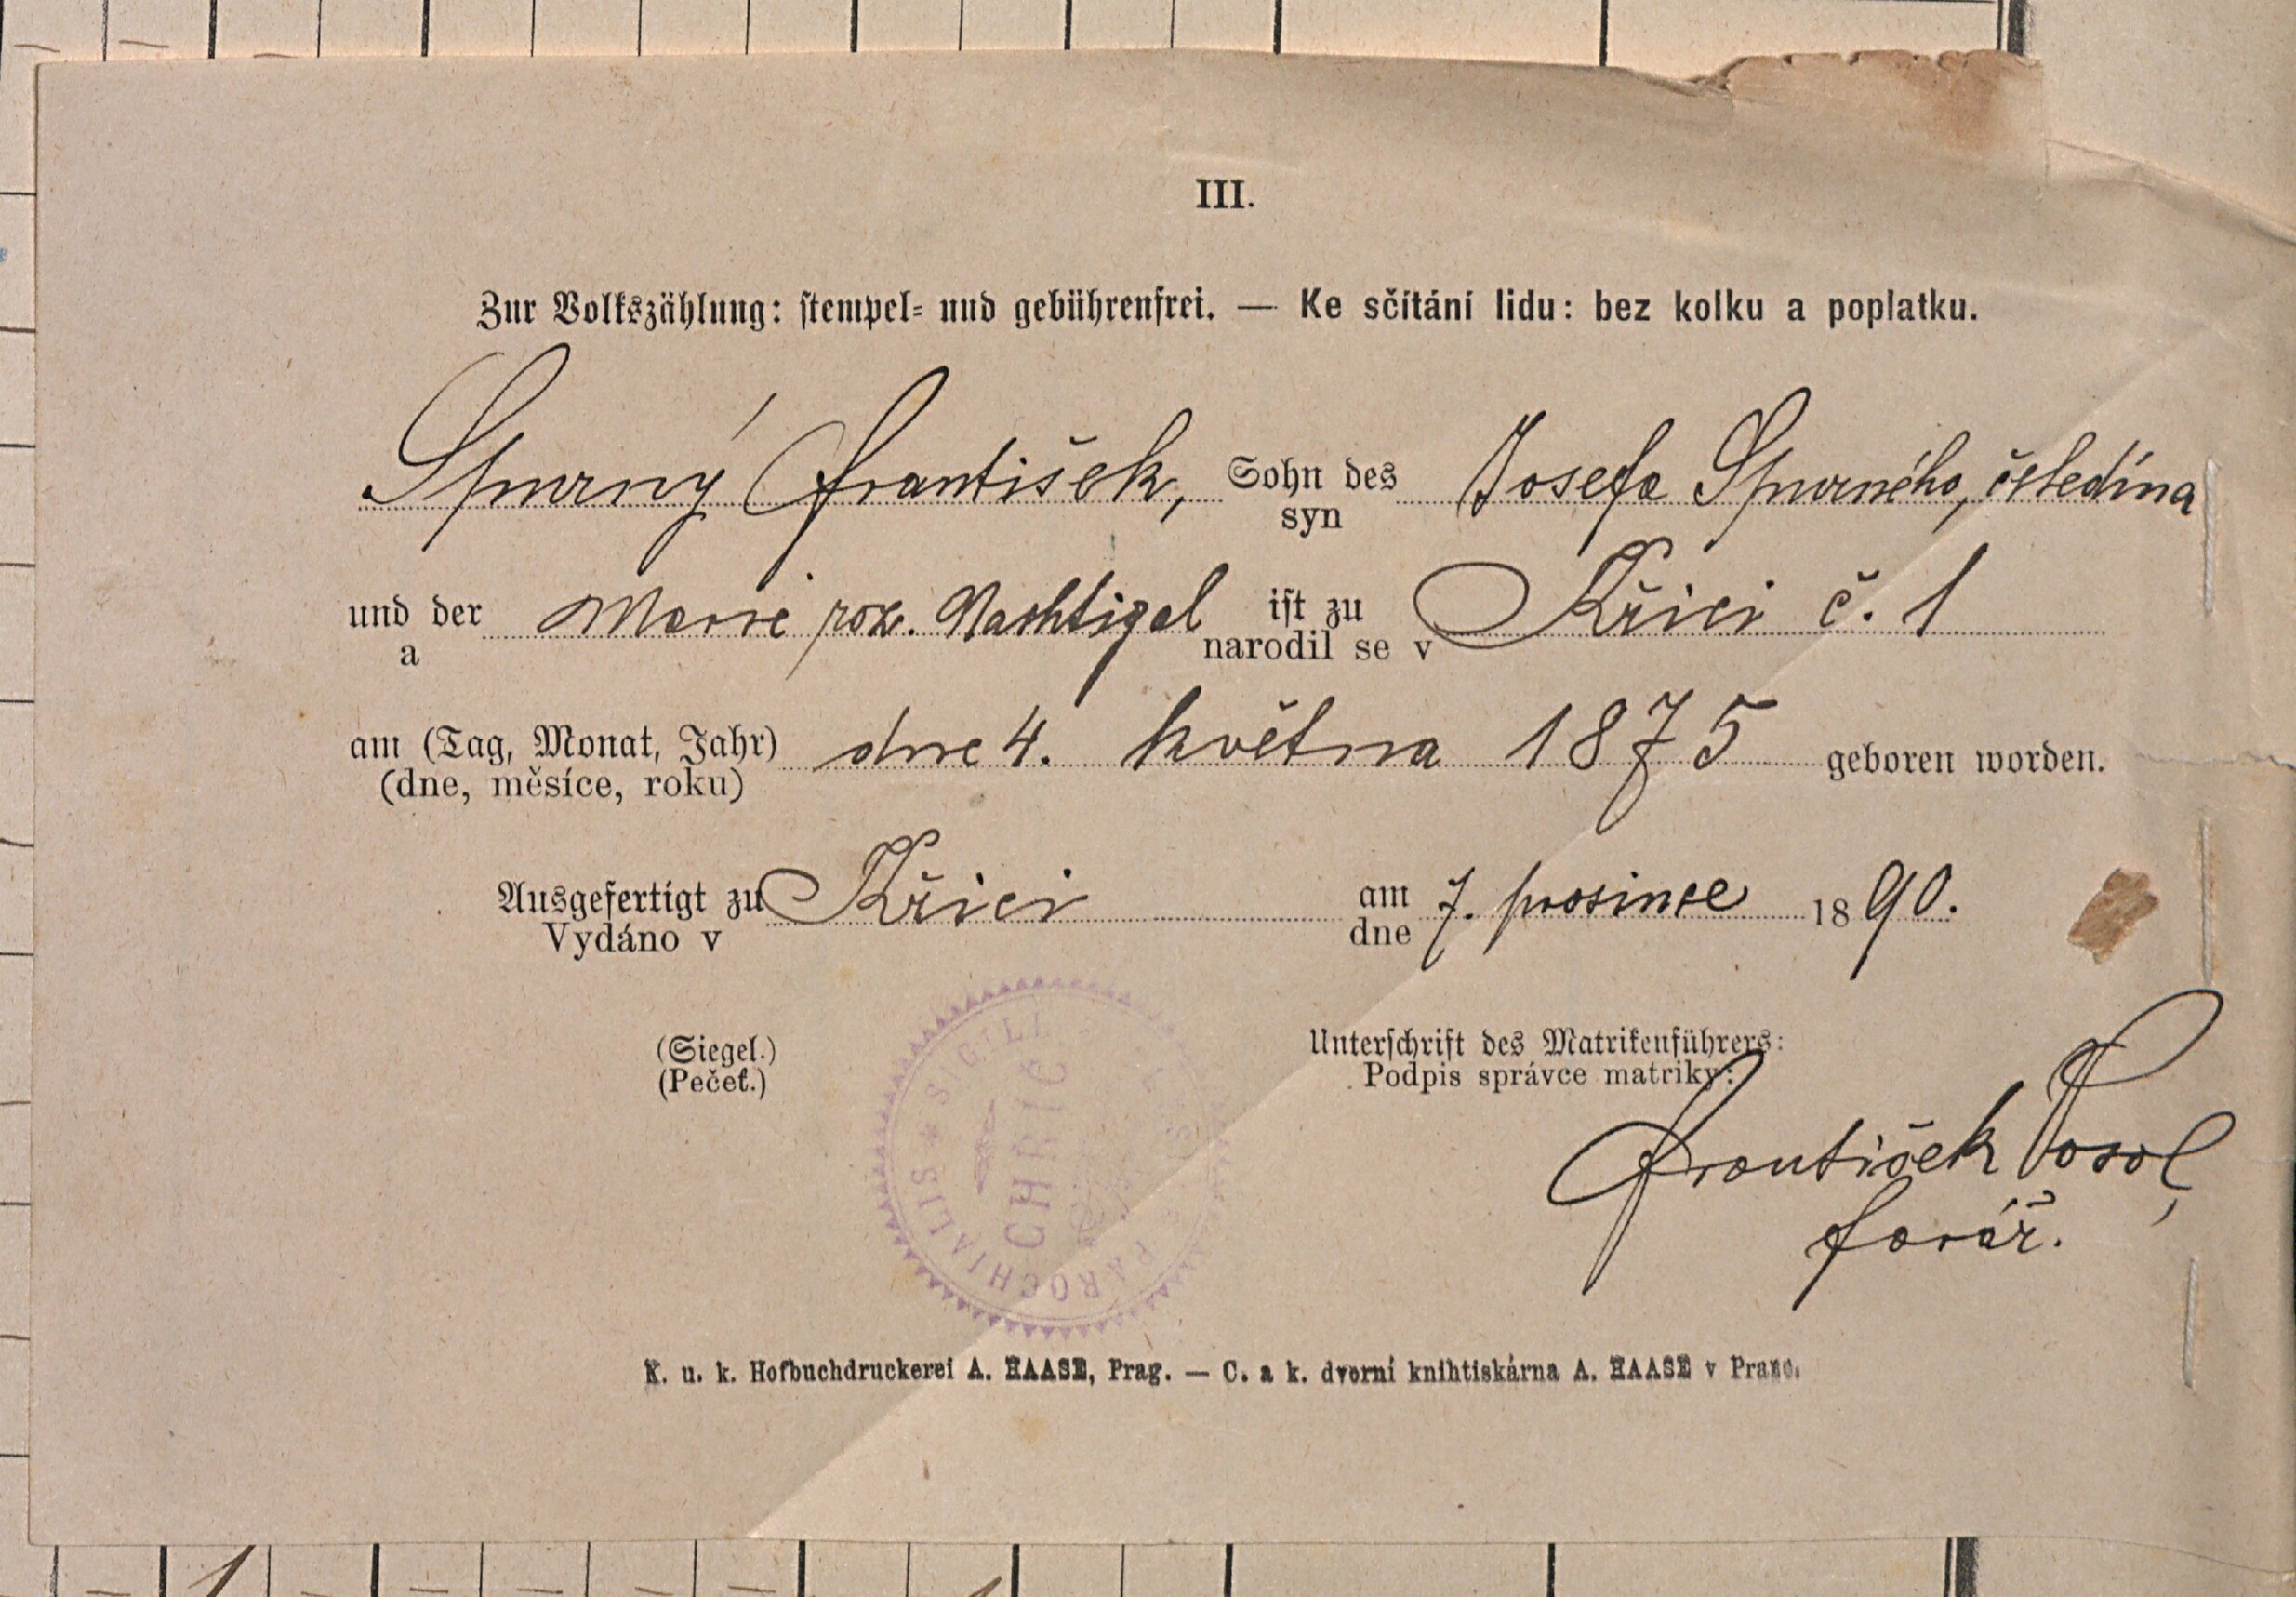 III.
Zur Volkszählung: stempel- und gebührenfrei. — Ke sčítání lidu: bez kolku a poplatku.
Spurný František, Sohn des Josefa Spurného, čeledína
syn
und der Marie roz. Nachtigal ist zu Křici č. 1
a narodil se v
am (Tag, Monat, Jahr) dne 4. května 1875 geboren worden.
(dne, měsíce, roku)
Ausgefertigt zu Křici am 7. prosince 1890.
Vydáno v dne
(Siegel.) Unterschrift des Matrikenführers:
(Pečeť.) Podpis správce matriky:
SIGILL PAROCHIALIS
CHŘIC
František Posol,
farář.
K. u. k. Hofbuchdruckerei A. HAASE, Prag. — C. a k. dvorní knihtiskárna A. HAASE v Praze.